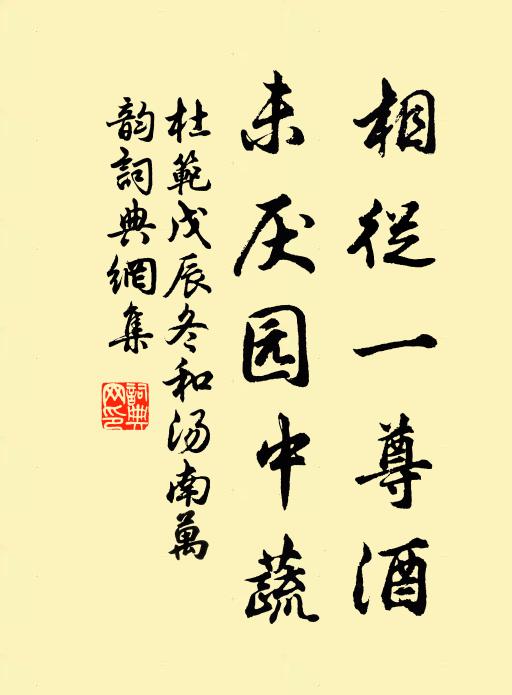 相從一尊酒
未厌园中蔬
杜範戊辰冬和汤南萬
韵詞典網集
詞典
网印